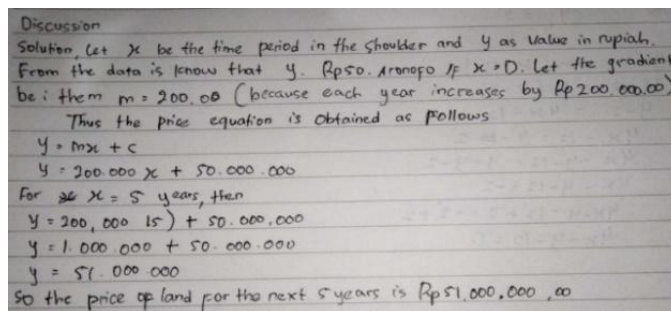 Discussion
Solution, Let x be the time period in the shoulder and y as value in rupiah.
From the data is know that y. Rp50. Aronofo if x = 0. Let the gradient
be i them m = 200.00 (because each year increases by Rp 200.000.00)
Thus the price equation is obtained as follows
y = mx + c
y = 200.000 x + 50.000.000
For x = 5 years, then
y = 200,000 15) + 50.000,000
y = 1.000.000 + 50.000.000
y = 51.000.000
So the price op land for the next 5 years is Rp51.000.000,00